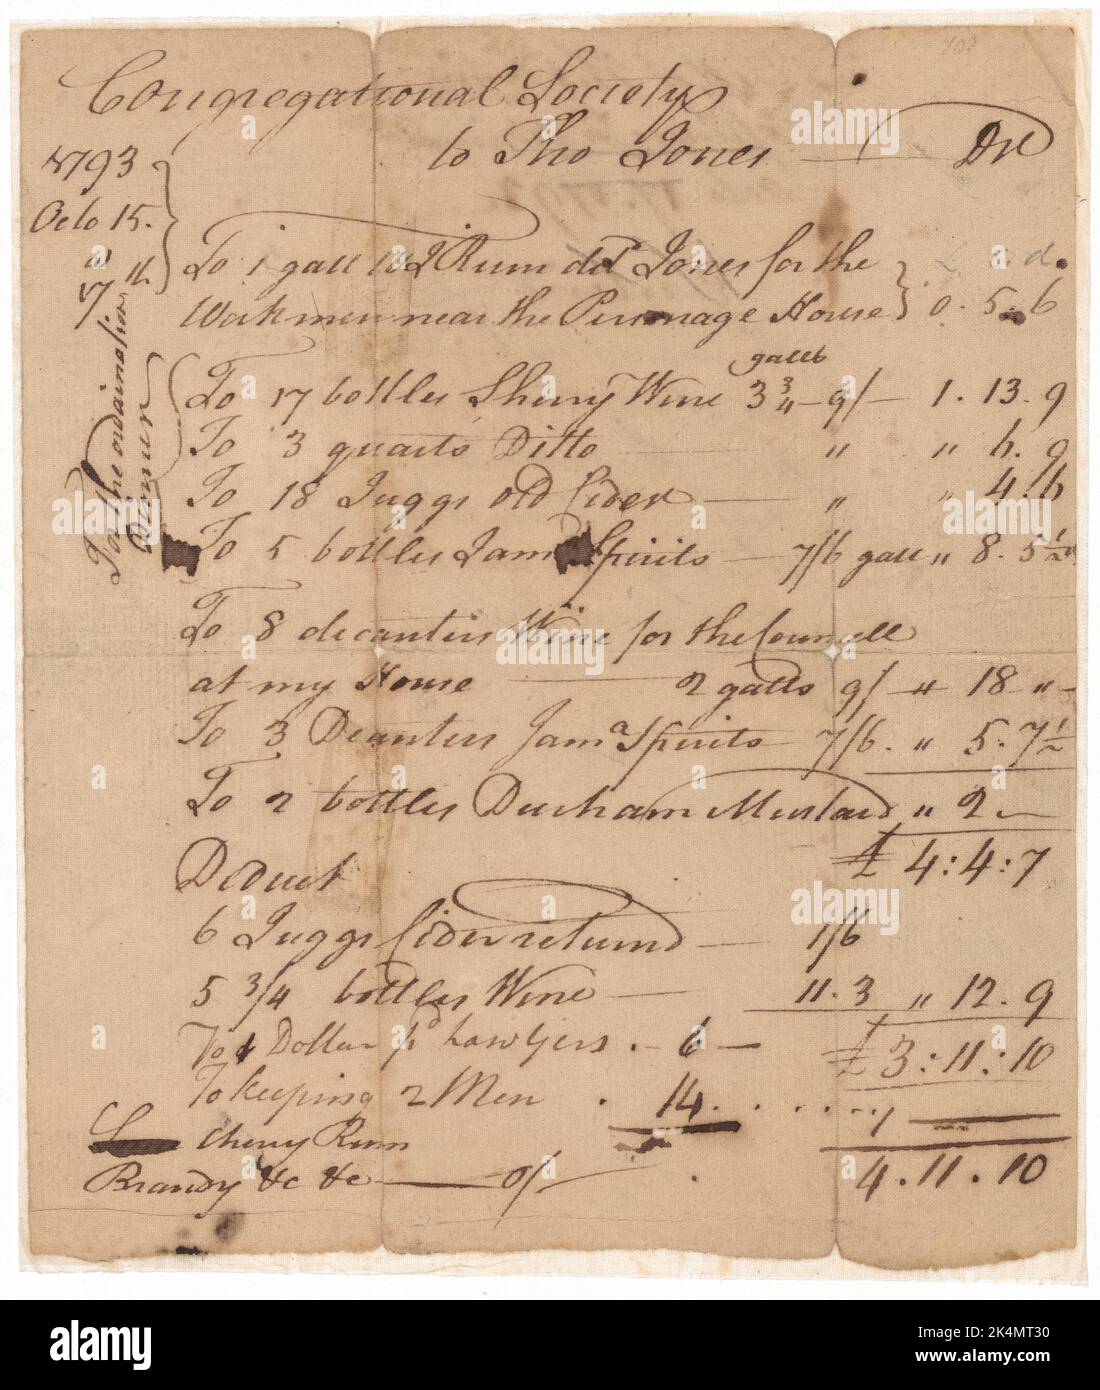 Congregational Society
to Tho Jones Dr
1793
Octo 15.
17th
£ s. d.
To 1 gall Rum dd Jones for the
Workmen near the Personage House 0. 5. 6
For the ordination
Dinner
galls
To 17 bottles Sherry Wine 3 3/4 9/ 1. 13. 9
To 3 quarts Ditto " " 6. 9
To 18 Juggs old Cider " " 4. 6
To 5 bottles Jam Spirits 7/6 gall " 8. 5 1/2
To 8 decanters Wine for the Councell
at my House 2 galls 9/ " 18 "
To 3 Decanters Jama Spirits 7/6. " 5. 7 1/2
To 2 bottles Durham Mustard " 2
£ 4:4:7
Deduct
6 Juggs Cider returnd 1/6
5 3/4 bottles Wine 11.3 " 12. 9
£ 3:11:10
To 1 Dollar pd Lawyers . 6
To keeping 2 Men . 14. . . . . . 1
Cherry Rum
Brandy &c &c 0/ . 4.11.10
alamy
a
alamy
2K4MT30
www.alamy.com